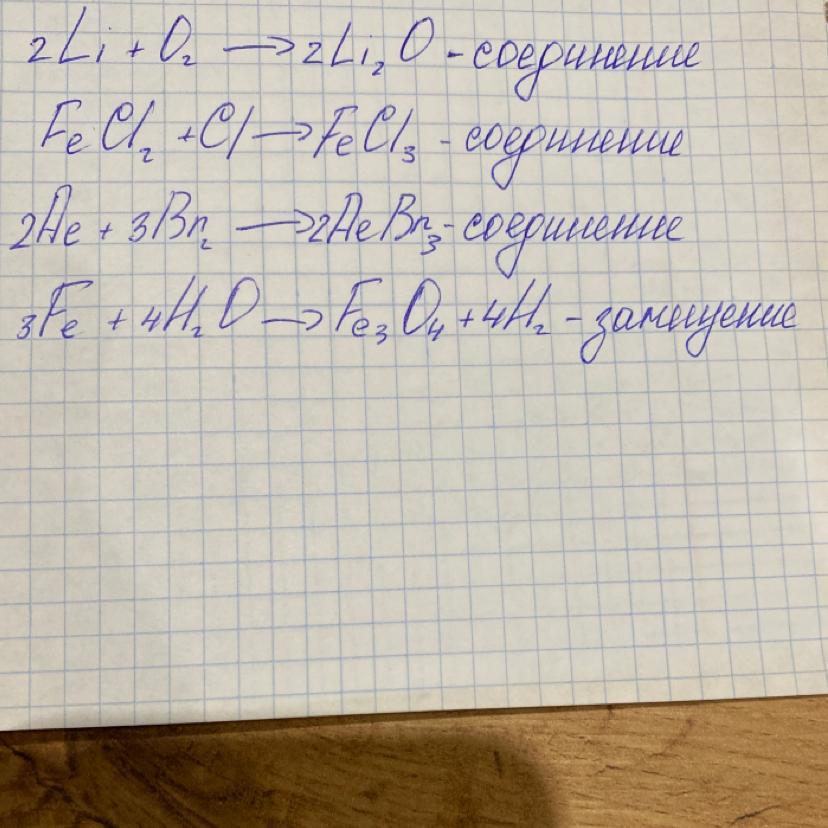 2Li + O₂ → 2Li₂O - соединение
FeCl₂ + Cl → FeCl₃ - соединение
2Ae + 3Br₂ → 2AeBr₃ - соединение
3Fe + 4H₂O → Fe₃O₄ + 4H₂ - замещение